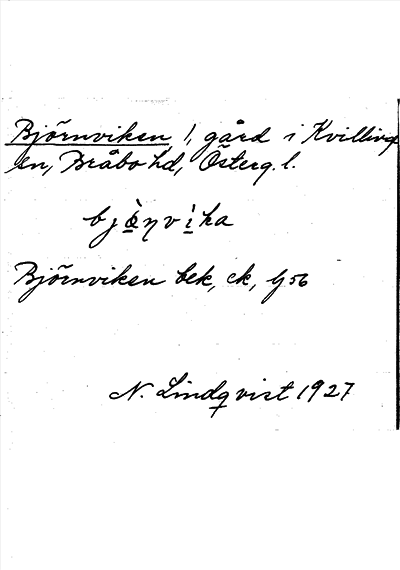 Björnviken 1, gård i Kvilling
en, Bråbo hd, Österg. l.
bjö̀ŋvi̱̇ka
Björnviken bek, ek, Gj 56
N. Lindqvist 1927